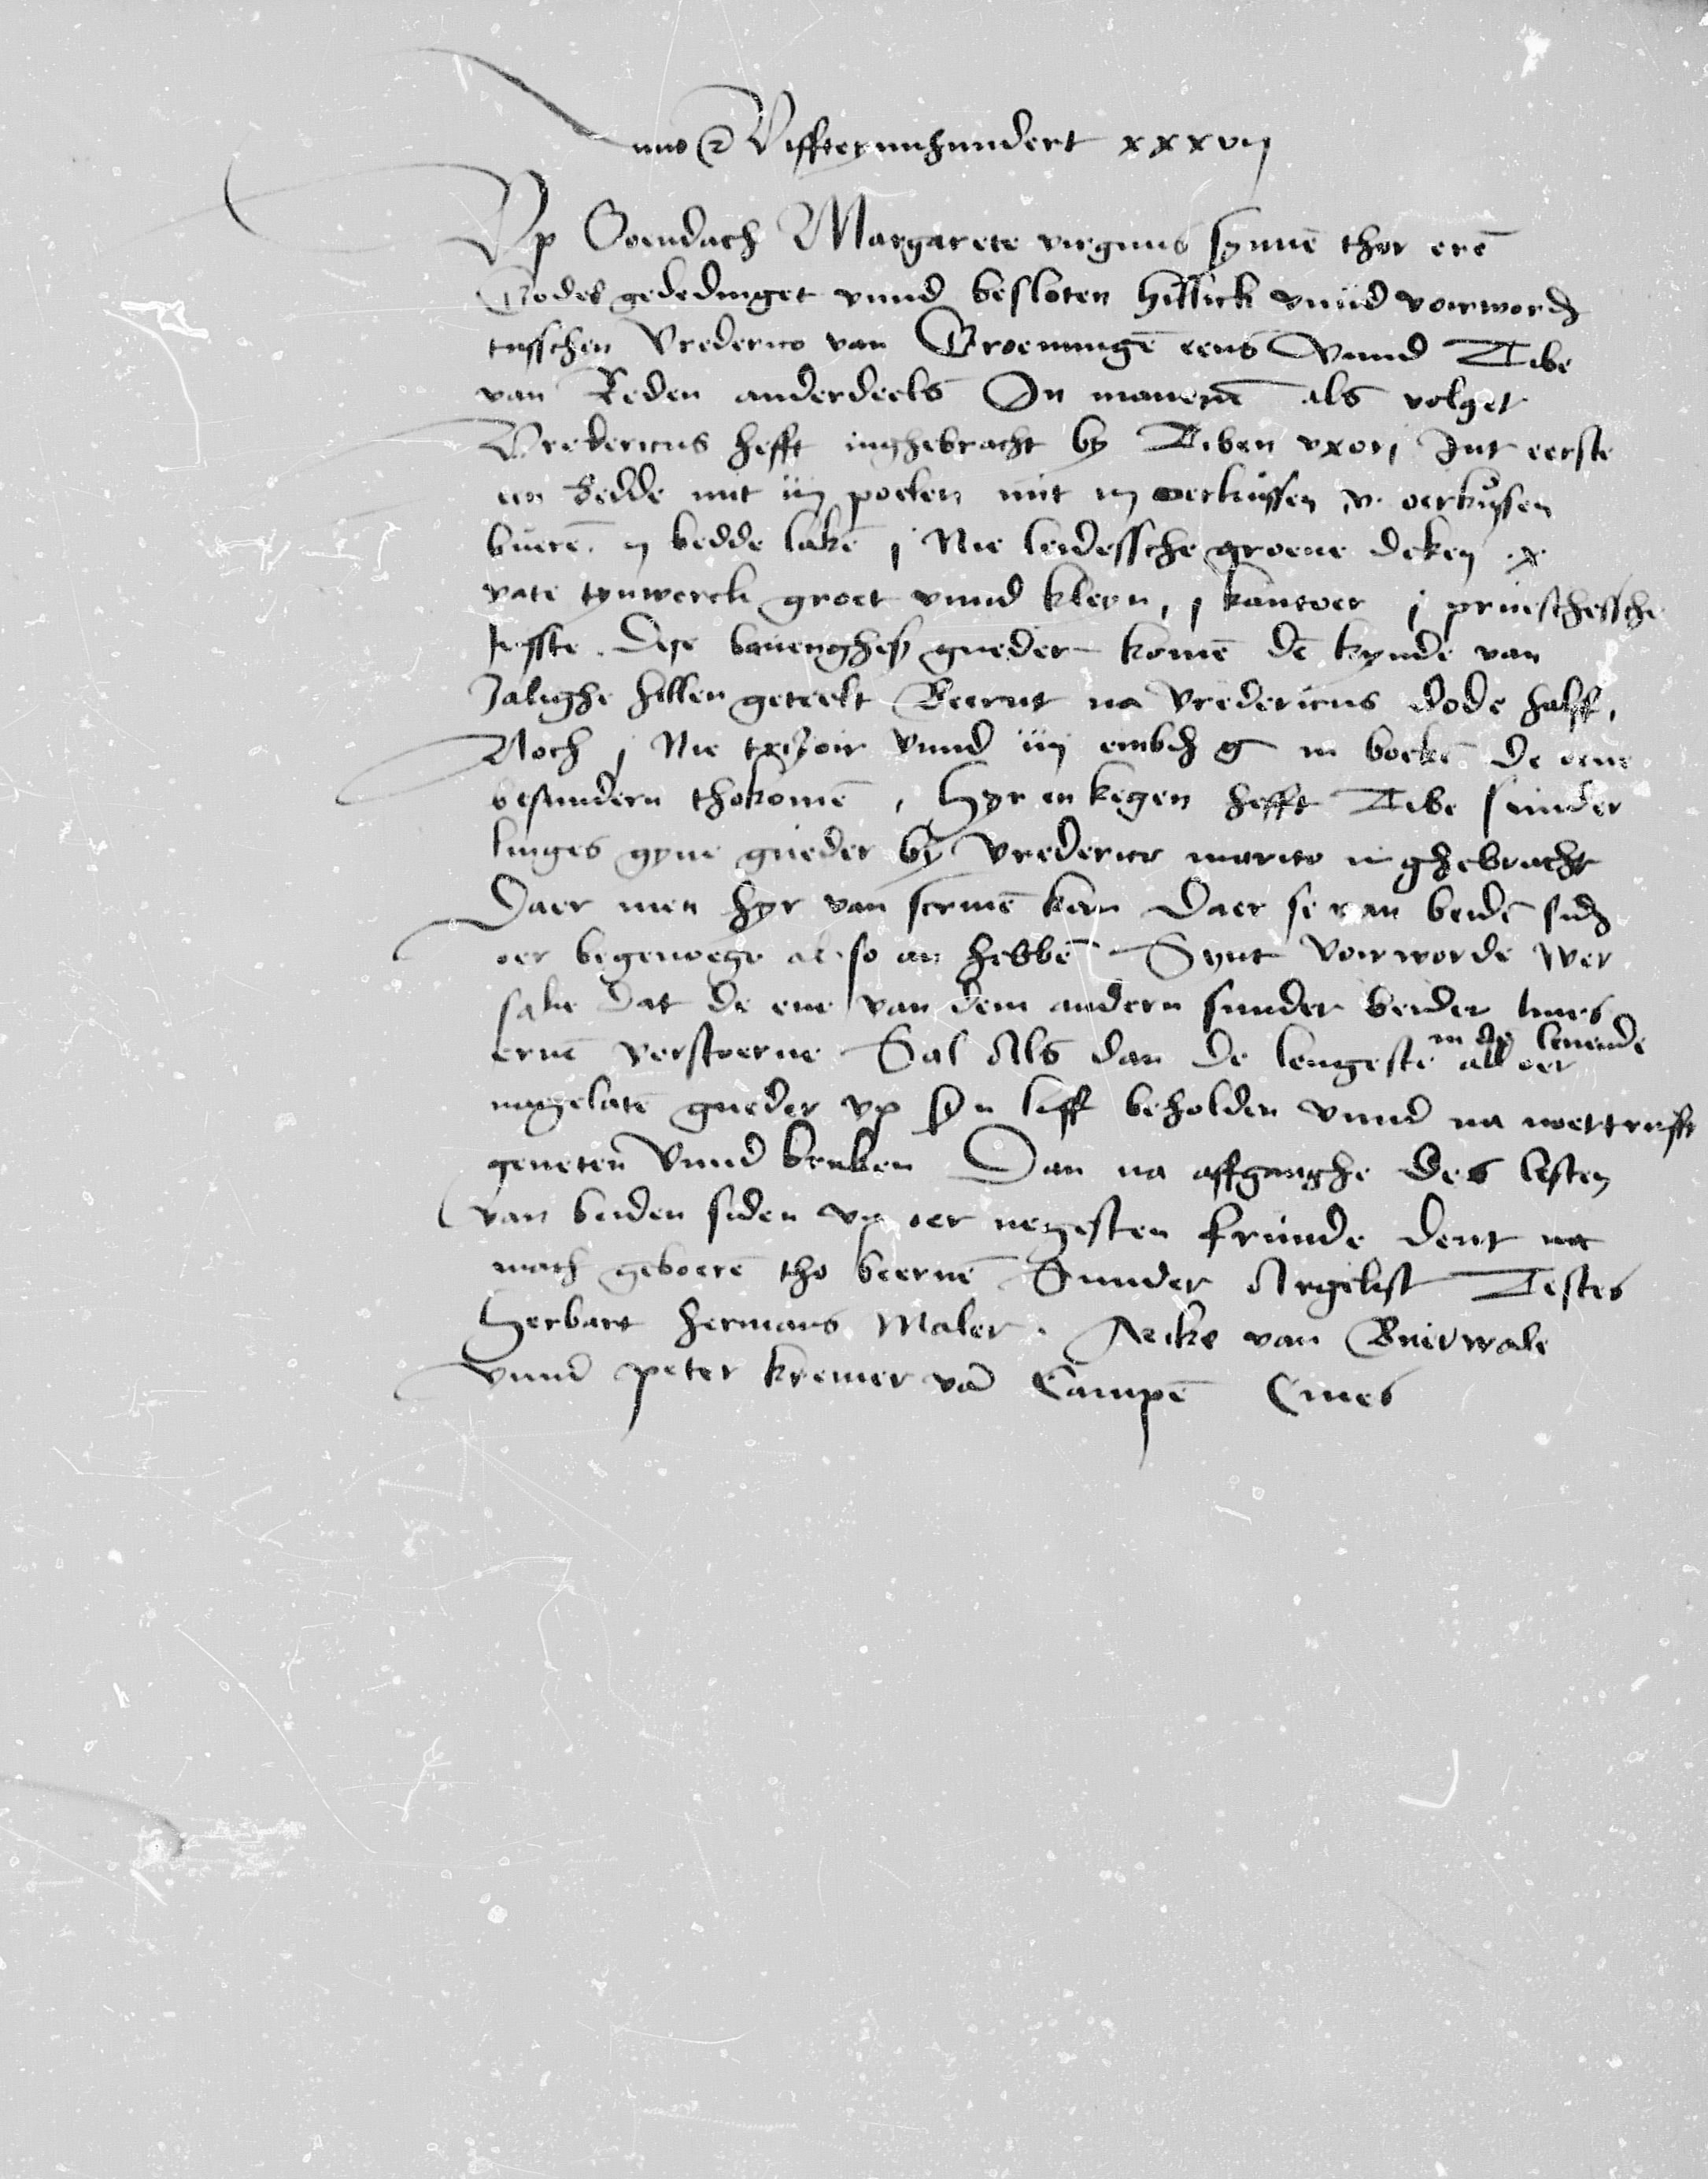 Anno etc Viffteynnhundert xxxvij
Vp Soendach Margarete virginis synnē thor erē
Godes gededinget vnnd besloten hillick vnnd vorword
tusschen Vrederico van Groenningē eens Vnnd Tibe
van Reden anderdeels In manerē als volget
Vredericus hefft inghebracht by Tiben vxorj Int eerste
een bedde mit iij poelen mit iij oerkussen v. oerkussen
buerē. ij bedde lakē j Nie leidessche groene deken .x.
vate tynwerck groet vnnd kleyn, j kantoer j pruschessche
kyste. Dese bauenghes gueder komē dē kynde van
zalighe hillen geteelt Beernt na Vredericus dode halff,
Noch j Nie trysoir Vnnd iiij embd g in boeke de oeme
besundern thokomē, Hyr en kegen hefft Tibe sunder
linges gyne gueder by Vrederico marito inghebracht
Daer men hyr van scriuē kan Daer se van beidē sid
oer begenoege also an hebbē Synt Vorworde Wer
sake dat de ene van dem andern sunder beider liues
eruē verstoerue Sal Als dan de lengeste in dē leuende all oer
nagelatē gueder vp syn lyff beholden vnnd na noettrufft
geneten Vnnd bruken Dan na affganghe des lesten
van beiden siden vp oer negesten frunde dent na
mach geboerē tho beeruē Sunder Argelist Testes
Herbart hermans Maler. Aeike van Buirwale
vnnd peter kremer vā Campē Ciues